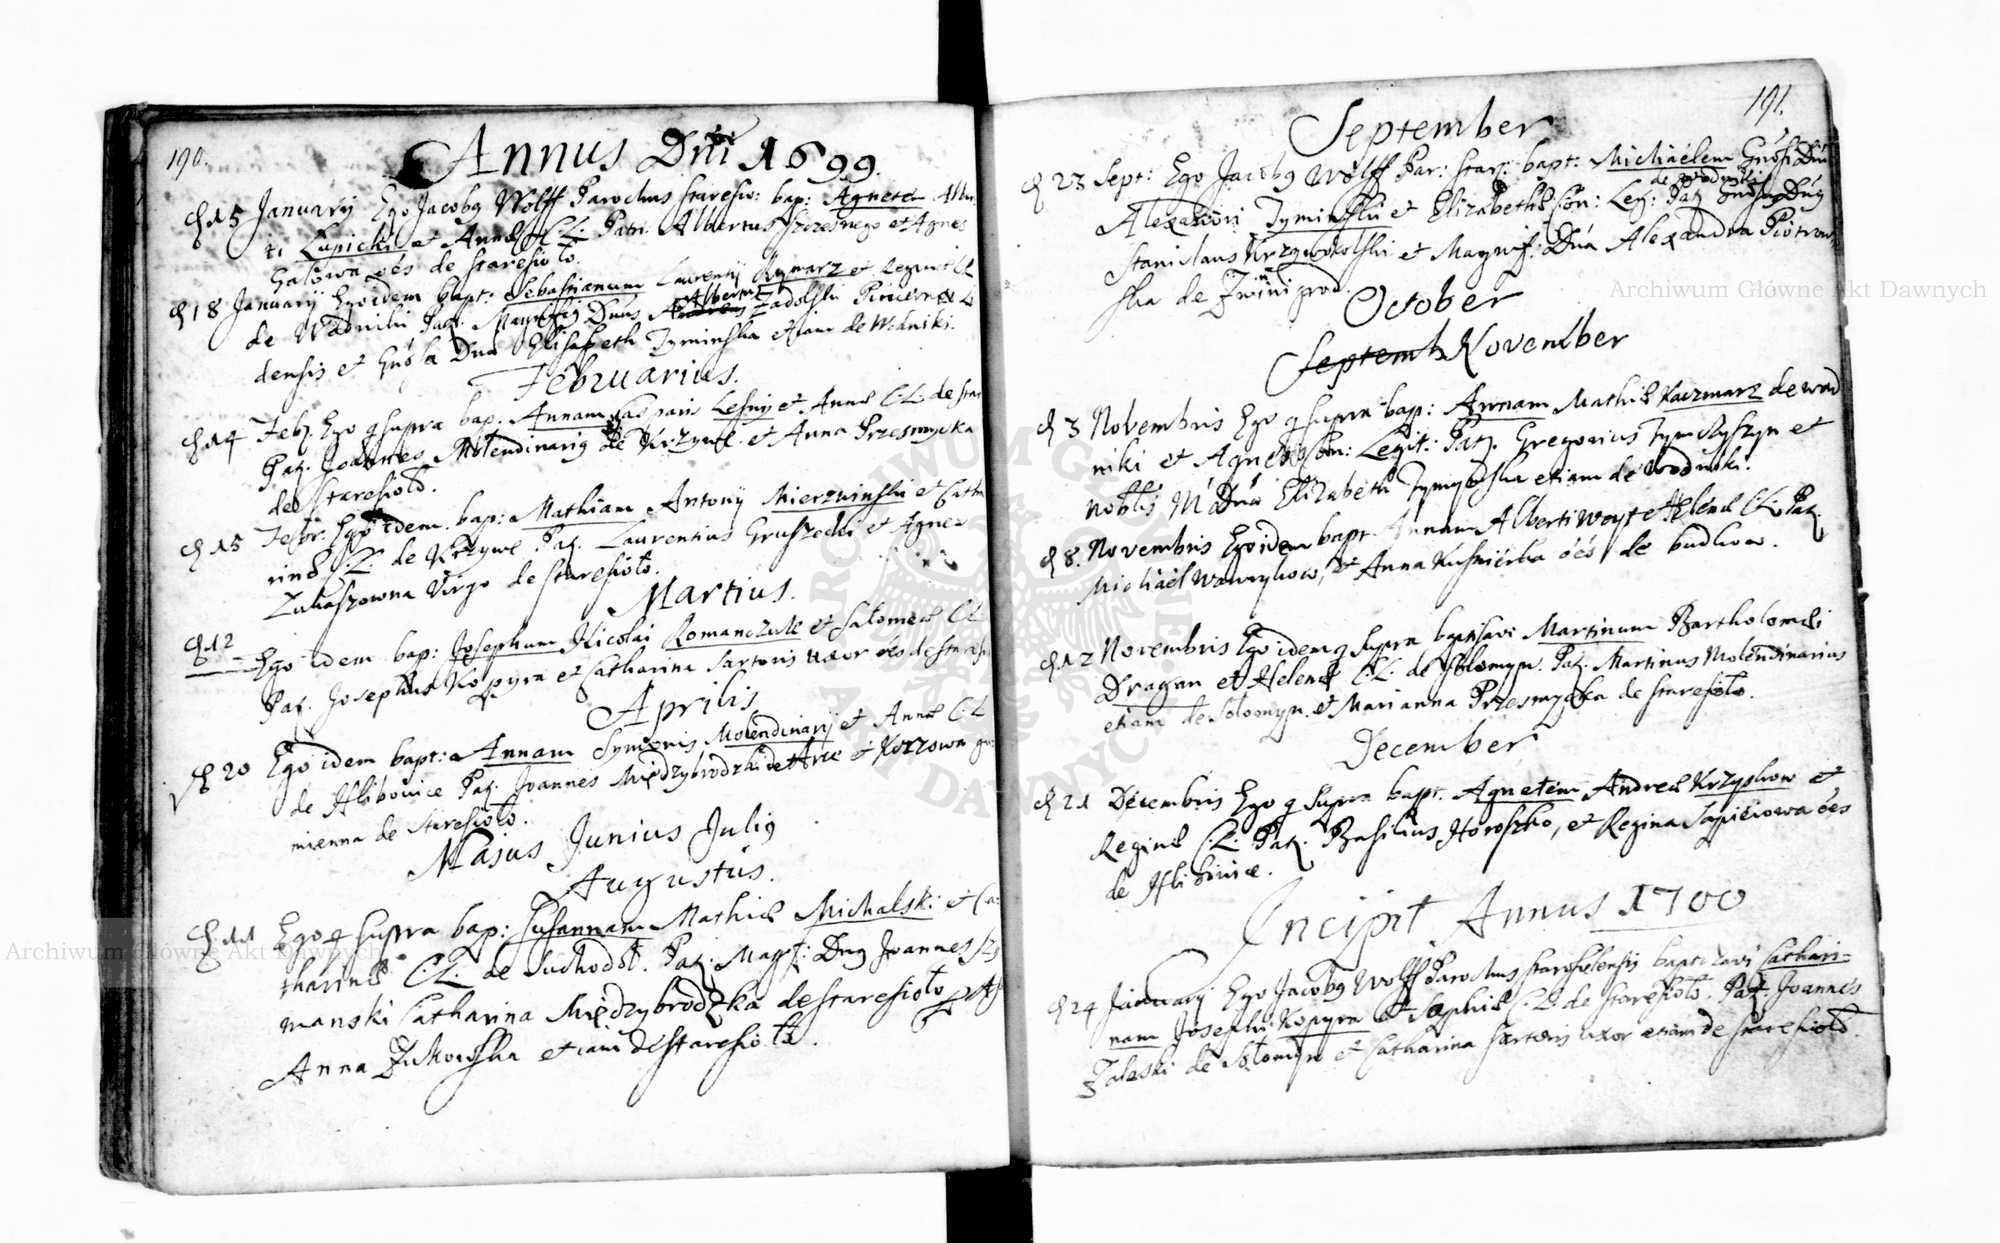 190.
Annus Dni 1699.
15 January Ego Jacobg Wolff Parochus staresio: bap: Agnetem Alber:
ti Łupicki et Annæ C.L. Patri: Albertus Szczesnego et Agnes
de staresioło.
18 January Ego idem bapt: Sebastianum Laurentÿ Rymarz et Reginæ CL
de Wodniki Pat. Dnus Albertus Zadolski
densis et Gnosa Dna Elisabeth Tyminska etiam de Wodniki.
Februarius.
14 Feb. Ego q supra bap. Annam Casparis Lesny et Annæ C.L. de star
Pat. Joannes Molendinarig de Krzywe et Anna Przesmycka
de staresioło.
15 Febr. Ego idem bap: Mathiam Antonÿ Mierzwinski et Catha
rinæ C.L. de Krzywe Pat. Laurentius Gruszecki et Agnes
Łukaszowna Virgo de staresioło.
Martius.
12 Ego idem bap: Josephum Nicolai Romanczuk et Salomeæ C.L.
Pat. Josephus Kopyra et Catharina Sartoris uxor oes de staresio
Aprilis
20 Ego idem bapt: Annam Symonis Molendinarÿ et Annæ C.L.
de Hlibowice Pat. Joannes Międzybrodzki de et
mienna de staresioło.
Majus Junius Julig
Augustus.
11 Ego q supra bap: Susannam Mathiæ Michalski et Ca:
tharinæ C.L. de Suchodoł. Pat. Magf: Dng Joannes
manski Catharina Międzybrodzka de staresioło
Anna Żukowska etiam de staresioło.
191.
September
23 Sept: Ego Jacobg Wolff Par: star: bapt: Michaelem Gnosi Dni
de Wodniki
Alexandri Tyminski et Elizabethæ Con: Leg: Pat Dng
Stanislaus et Magnif: Dna Alexandra Piotrow
ska de
October
Septemb November
3 Novembris Ego q supra bap: Annam Mathiæ Kaczmarz de wod
niki et Agnetis Con: Legit: Pat. Gregorius et
Noblis M Dna Elizabeth etiam de Wodniki.
8. Novembris Ego idem bapt. Annam Alberti Woyt et Helenæ C.L. Pat.
Michael Wawrykow, et Anna Kusnierka oes de budkow.
12 Novembris Ego idem q supra baptisavi Martinum Bartholomei
Dragan et Helenæ C.L. de Sołomyn. Pat. Martinus Molendinarius
etiam de Sołomyn. et Marianna Przesmycka de staresioło.
December
21 Decembris Ego q supra bapt. Agnetem Andreæ Krzyskow et
Reginæ C.L. Pat. Basilius Horoszko, et Regina Sapiciowa oes
de Hlibowice.
Incipit Annus 1700
24 January Ego Jacobg Wolff Parochus staresiolensis baptizavi Cathari=
nam Josephi Kopyra et Sophiæ C.L. de staresioło. Pat. Joannes
Zaleski de Sołomyn et Catharina sartoris uxor etiam de staresioło.
Archiwum Główne Akt Dawnych
Archiwum Główne Akt Dawnych
ARCHIWUM GŁÓWNE AKT DAWNYCH